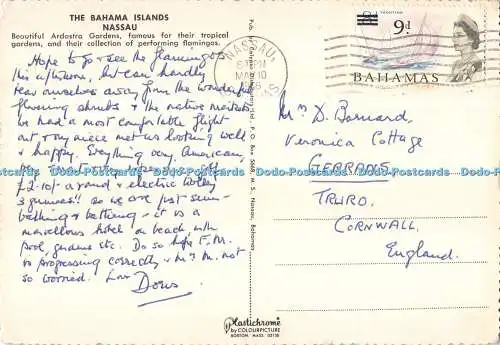 THE BAHAMA ISLANDS
NASSAU
Beautiful Ardastra Gardens, famous for their tropical
gardens, and their collection of performing flamingos.
Hope to go & see the flamingos
this afternoon, but can hardly
tear ourselves away from the wonderful
flowering shrubs & the native
we had a most comfortable flight
out & my niece met us looking well
& happy. Everything very American,
£2-10/- a round & electric trolley
3 guineas!! so we are just sun-
bathing & bathing - it is a
marvellous hotel on beach, with
pool, gardens etc. Do so hope F.M.
is progressing correctly & Mrs M. not
so worried. Love
Doris
NASSAU,
6 PM
MAY 10
BAHAMAS
9d
BAHAMAS
Mrs D. Barnard,
Veronica Cottage
GERRANS
TRURO,
CORNWALL,
England.
Nassau, Bahamas
Plastichrome
by COLOURPICTURE
BOSTON, MASS. 02130
Dodo-Postcards